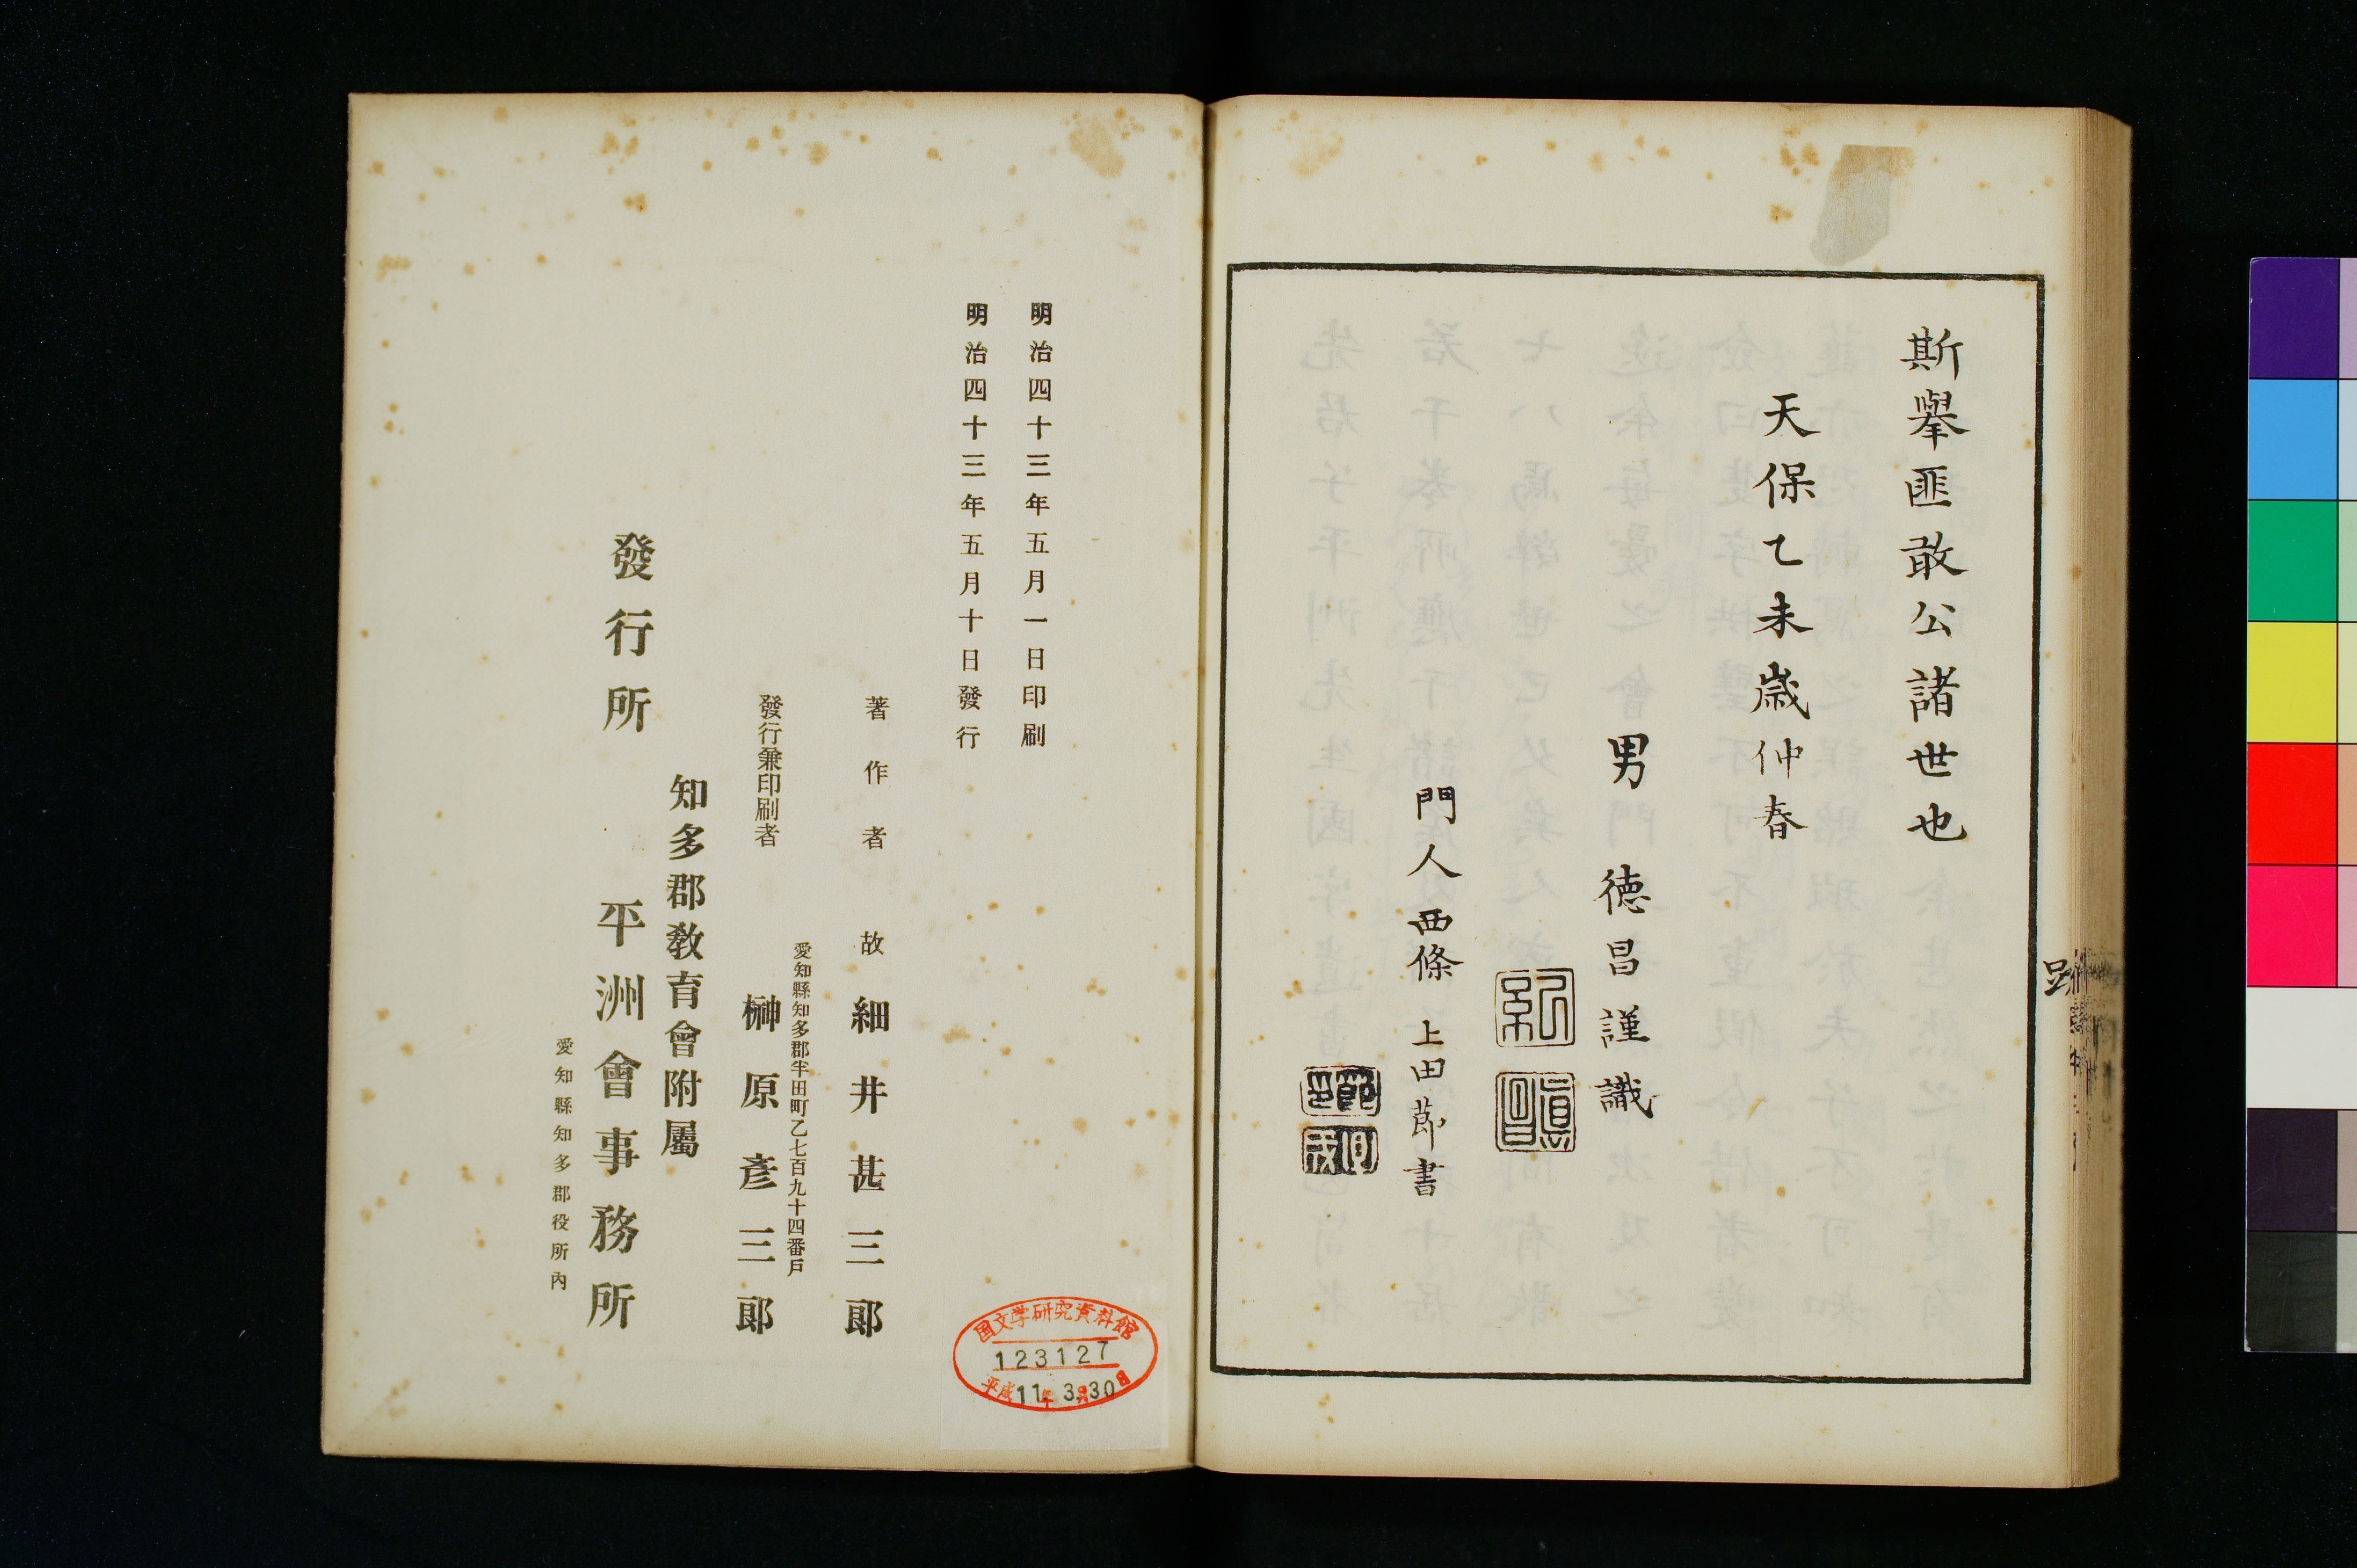 斯擧匪敢公諸世也
天保乙未歲仲春
男 德昌謹識
門人 西條 上田節書
跡
明治四十三年五月一日印刷
明治四十三年五月十日發行
著作者 故 細井甚三郎
愛知縣知多郡半田町乙七百九十四番戶
發行兼印刷者 榊原彥三郎
知多郡敎育會附屬
發行所 平洲會事務所
愛知縣知多郡役所內
国文学研究資料館
123127
平成11年3月30日